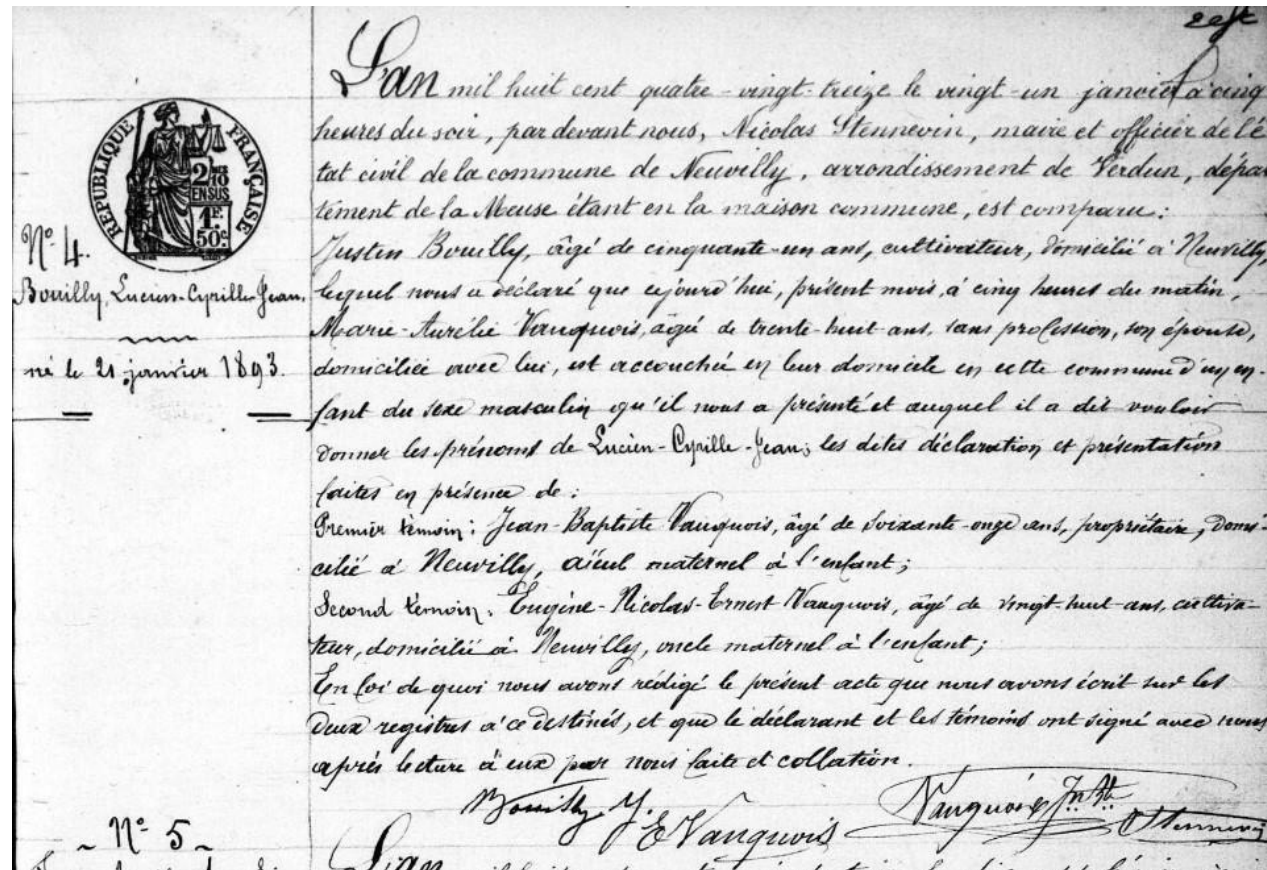 L'an mil huit cent quatre-vingt-treize le vingt-un janvier à cinq
heures du soir, par devant nous, Nicolas Stennevin, maire et officier de l'é
tat civil de la commune de Neuvilly, arrondissement de Verdun, dépar
tement de la Meuse étant en la maison commune, est comparu:
Justin Bouilly, âgé de cinquante-un ans, cultivateur, domicilié à Neuvilly,
lequel nous a déclaré que cejourd'hui, présent mois, à cinq heures du matin,
Marie-Aurélie Vauquois, âgée de trente-huit ans, sans profession, son épouse,
domiciliée avec lui, est accouchée en leur domicile en cette commune d'un en-
fant du sexe masculin qu'il nous a présenté et auquel il a dit vouloir
donner les prénoms de Lucien-Cyrille-Jean; les dites déclaration et présentation
faites en présence de:
Premier témoin: Jean-Baptiste Vauquois, âgé de soixante-onze ans, propriétaire, domi-
cilié à Neuvilly, aïeul maternel à l'enfant;
Second témoin: Eugène-Nicolas-Ernest Vauquois, âgé de vingt-huit ans, cultiva-
teur, domicilié à Neuvilly, oncle maternel à l'enfant;
En foi de quoi nous avons rédigé le présent acte que nous avons écrit sur les
deux registres à ce destinés, et que le déclarant et les témoins ont signé avec nous
après lecture à eux par nous faite et collation.
Bouilly J.
E Vauquois
Vauquois Jn Bte
Stennevin
REPUBLIQUE FRANÇAISE
2/10
EN SUS
1F.
50c.
Nº 4.
Bouilly, Lucien-Cyrille-Jean.
né le 21 janvier 1893.
Nº 5
L'an